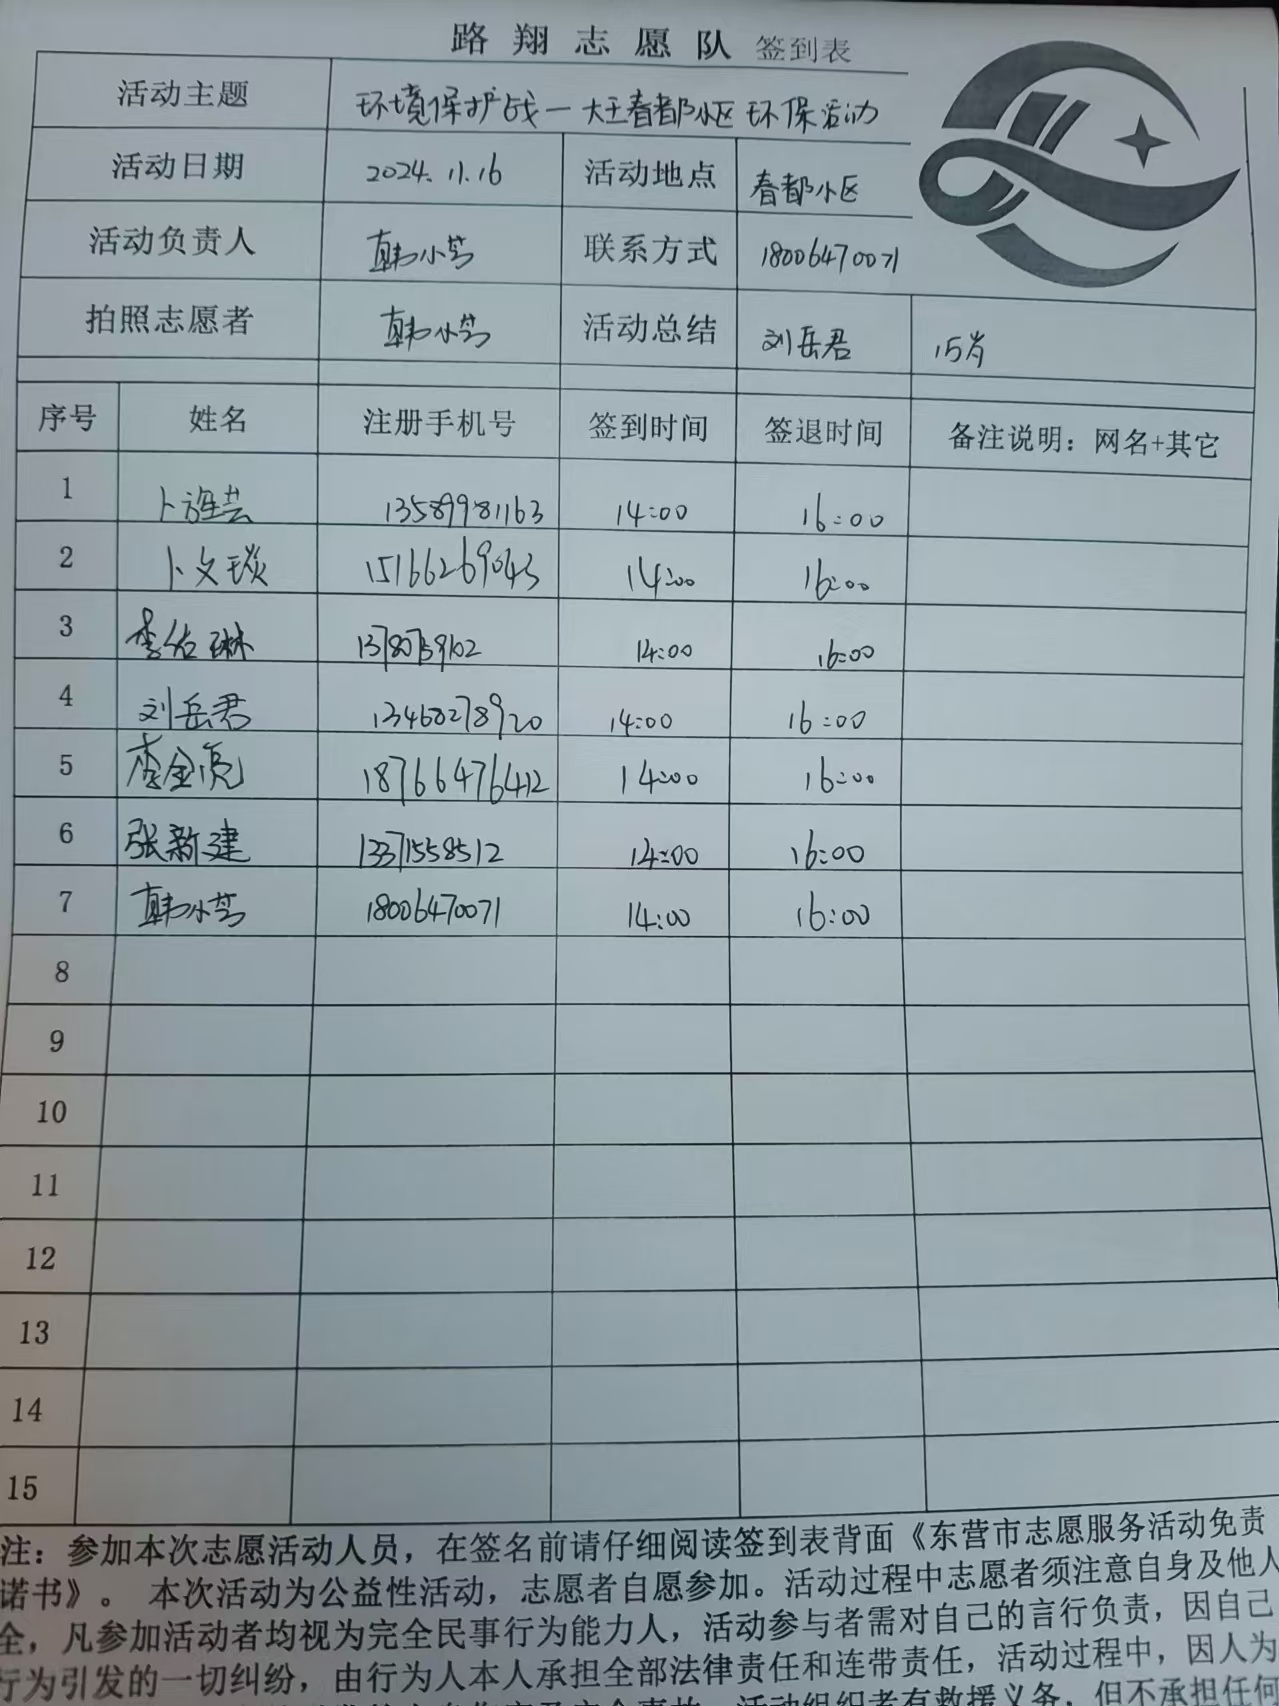 路翔志愿队 签到表
活动主题 环境保护战一大王春都小区环保活动
活动日期 2024.11.16 活动地点 春都小区
活动负责人 韩小芳 联系方式 18006470071
拍照志愿者 韩小芳 活动总结 刘岳君 15岁
序号 姓名 注册手机号 签到时间 签退时间 备注说明：网名+其它
1 卜谁芸 13589981163 14:00 16:00
2 卜文琰 15166269043 14:00 16:00
3 李佑琳 14:00 16:00
4 刘岳君 13468278920 14:00 16:00
5 李金亮 18766476412 14:00 16:00
6 张新建 13371558512 14:00 16:00
7 韩小芳 18006470071 14:00 16:00
8
9
10
11
12
13
14
15
注：参加本次志愿活动人员，在签名前请仔细阅读签到表背面《东营市志愿服务活动免责
诺书》。 本次活动为公益性活动，志愿者自愿参加。活动过程中志愿者须注意自身及他人
全，凡参加活动者均视为完全民事行为能力人，活动参与者需对自己的言行负责，因自己
行为引发的一切纠纷，由行为人本人承担全部法律责任和连带责任，活动过程中，因人为
活动组织者有救援义务，但不承担任何